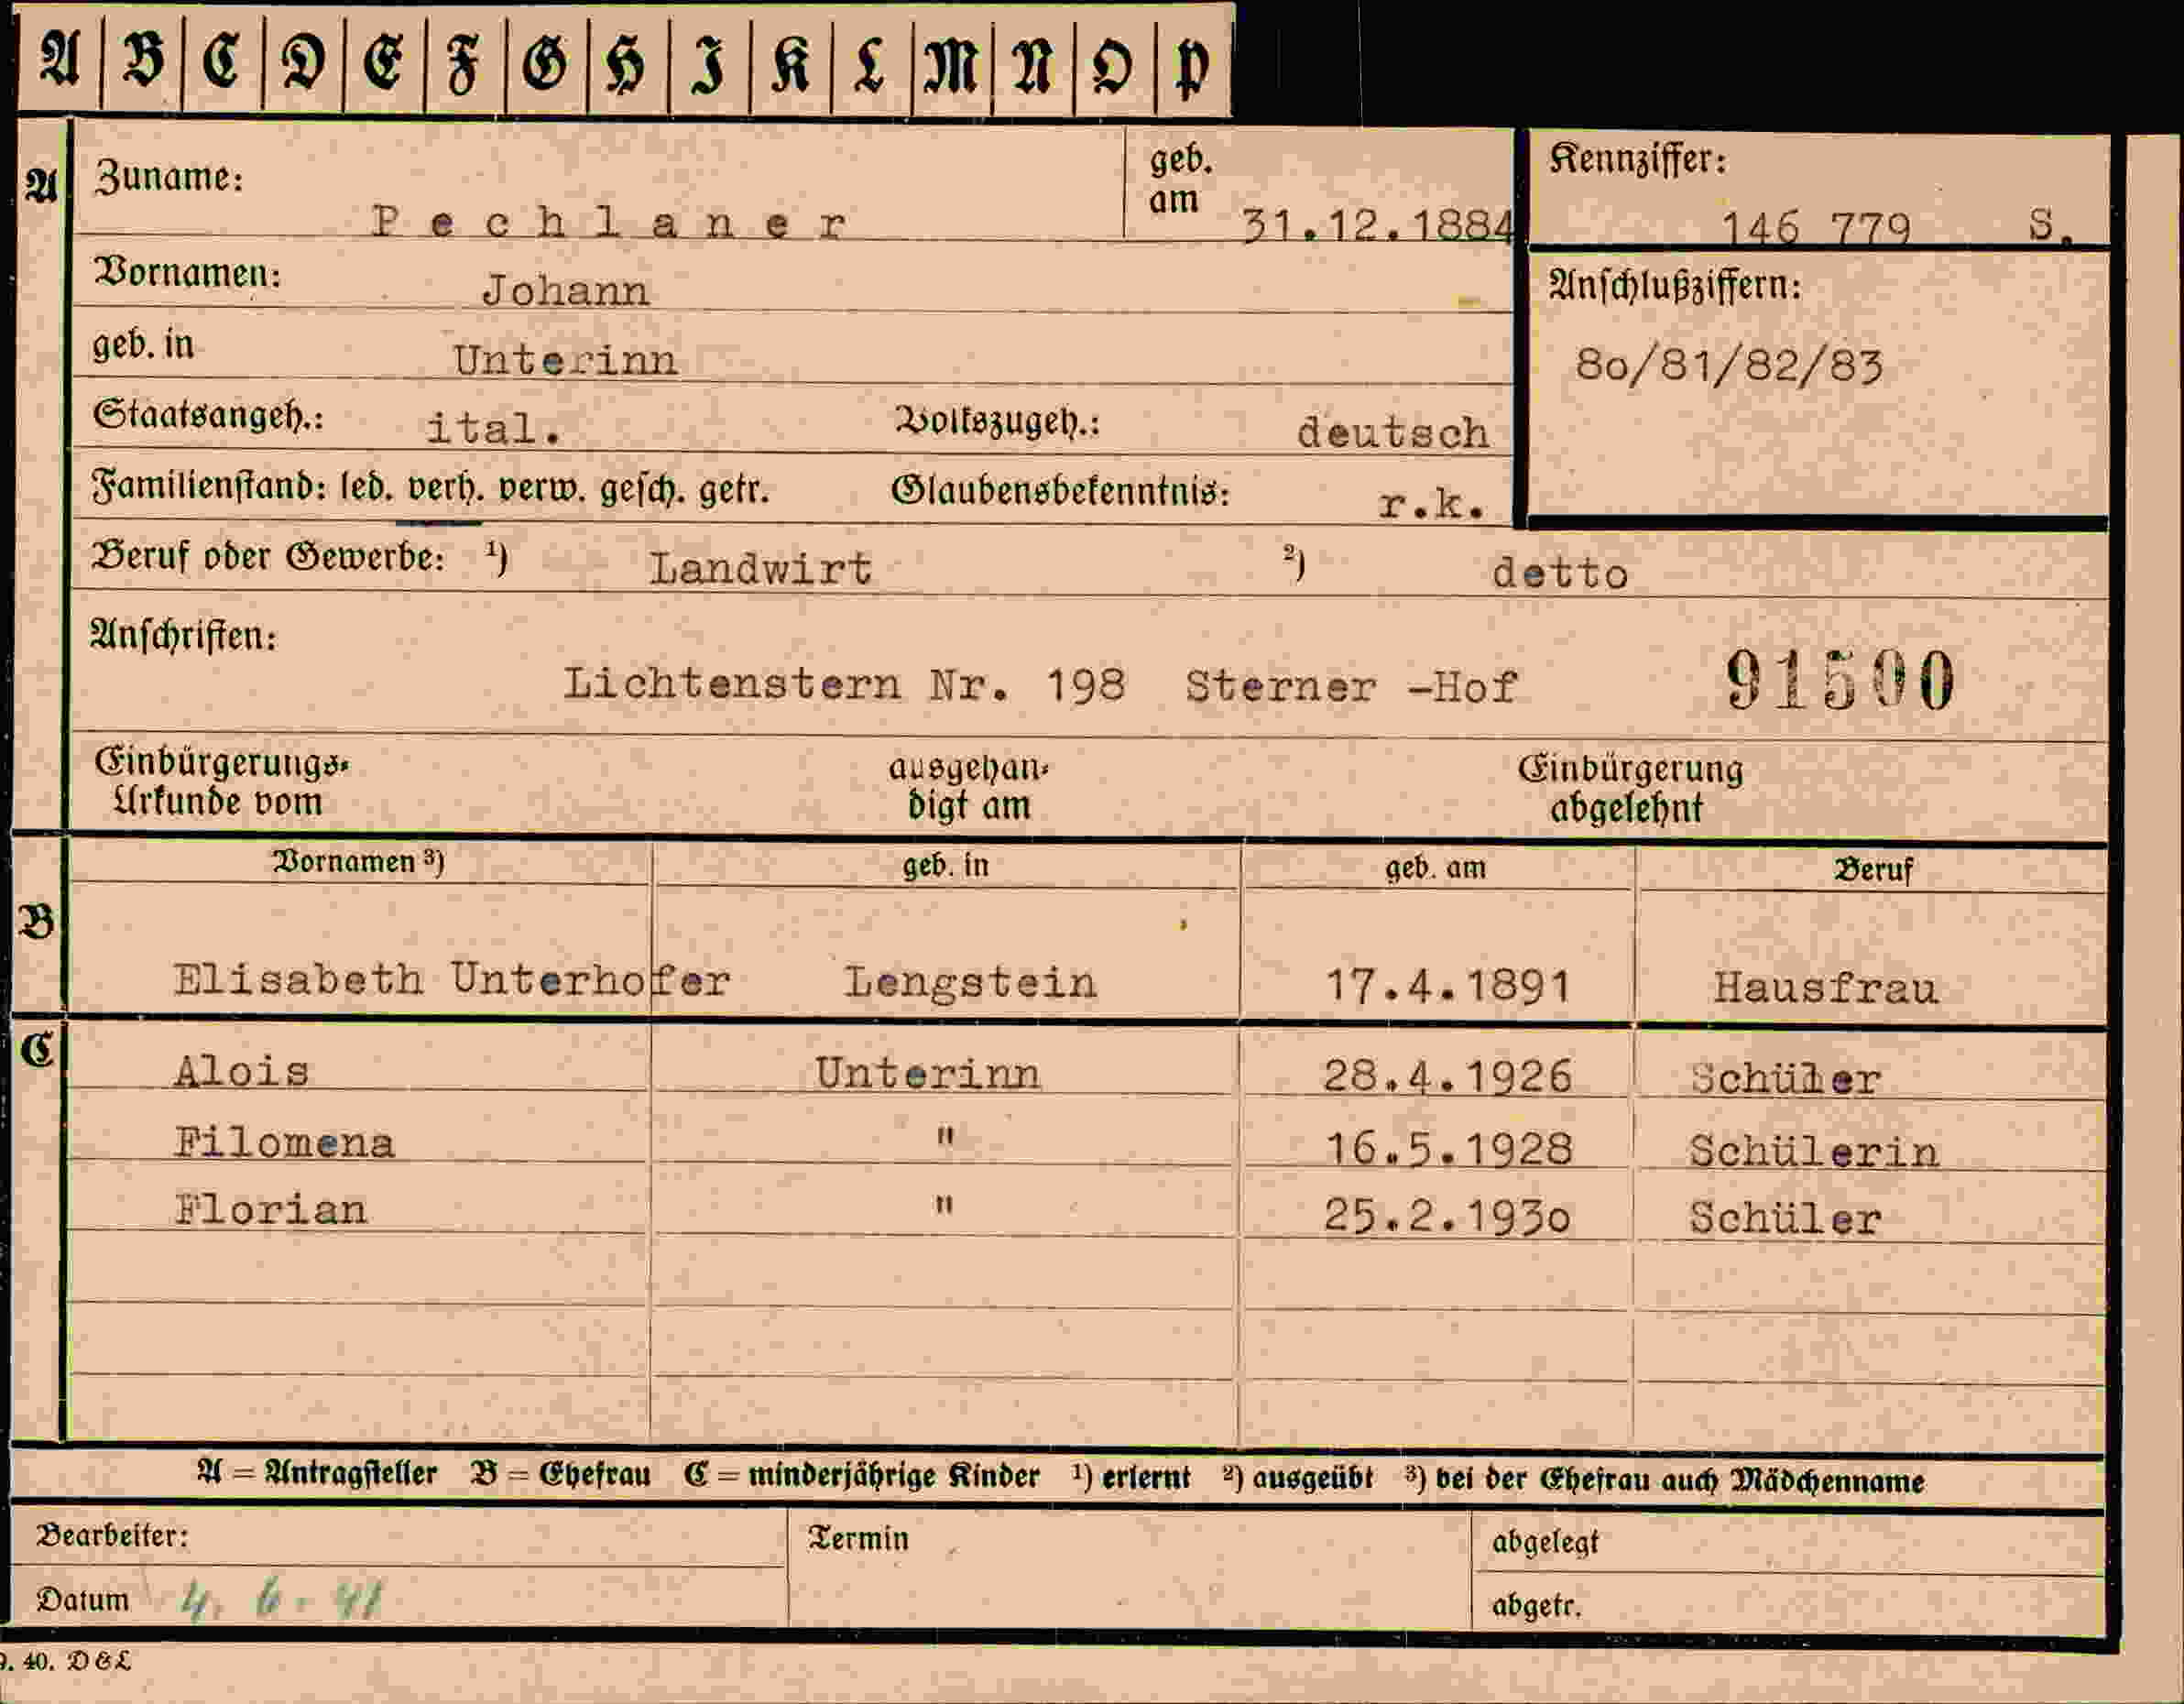 A B C D E F G H I K L M N O P
A Zuname: Pechlaner geb. am 31.12.1884 Kennziffer: 146 779 S.
Vornamen: Johann Anschlußziffern:
geb. in Unterinn 80/81/82/83
Staatsangeh.: ital. Volkszugeh.: deutsch
Familienstand: led. verh. verw. gesch. getr. Glaubensbekenntnis: r.k.
Beruf oder Gewerbe: ¹) Landwirt ²) detto
Anschriften:
Lichtenstern Nr. 198 Sterner -Hof 91500
Einbürgerungs- ausgehän- Einbürgerung
Urkunde vom digt am abgelehnt
Vornamen ³) geb. in geb. am Beruf
B
Elisabeth Unterhofer Lengstein 17.4.1891 Hausfrau
C Alois Unterinn 28.4.1926 Schüler
Filomena " 16.5.1928 Schülerin
Florian " 25.2.1930 Schüler
A = Antragsteller B = Ehefrau C = minderjährige Kinder ¹) erlernt ²) ausgeübt ³) bei der Ehefrau auch Mädchenname
Bearbeiter: Termin abgelegt
Datum 4. 6. 41 abgetr.
9. 40. D & L